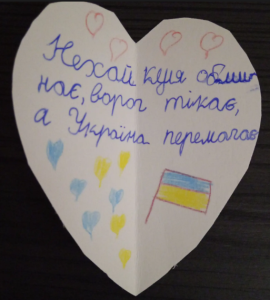 Нехай куля обми-
нає, ворог тікає,
а Україна перемагає